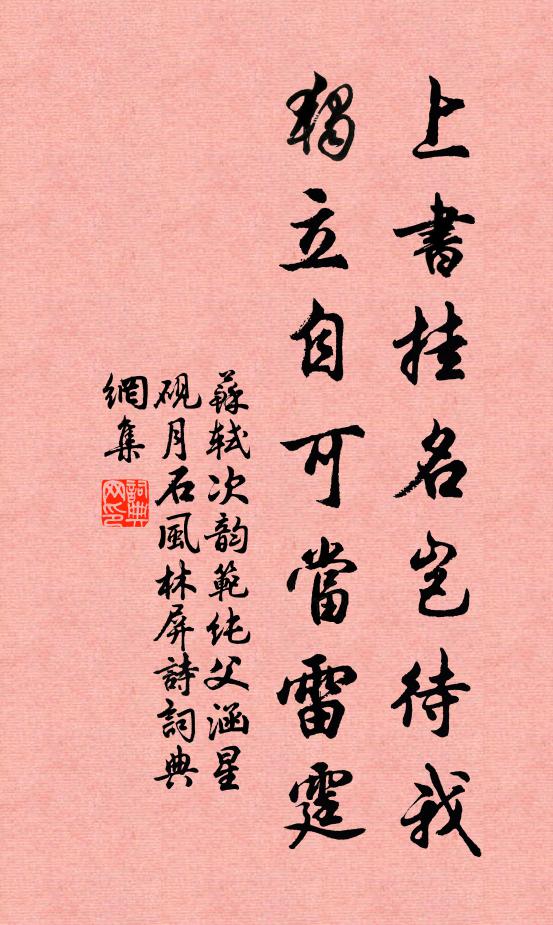 上書挂名豈待我
獨立自可當雷霆
蘇軾次韵範純父涵星
硯月石風林屏詩詞典
網集
詞典
网印